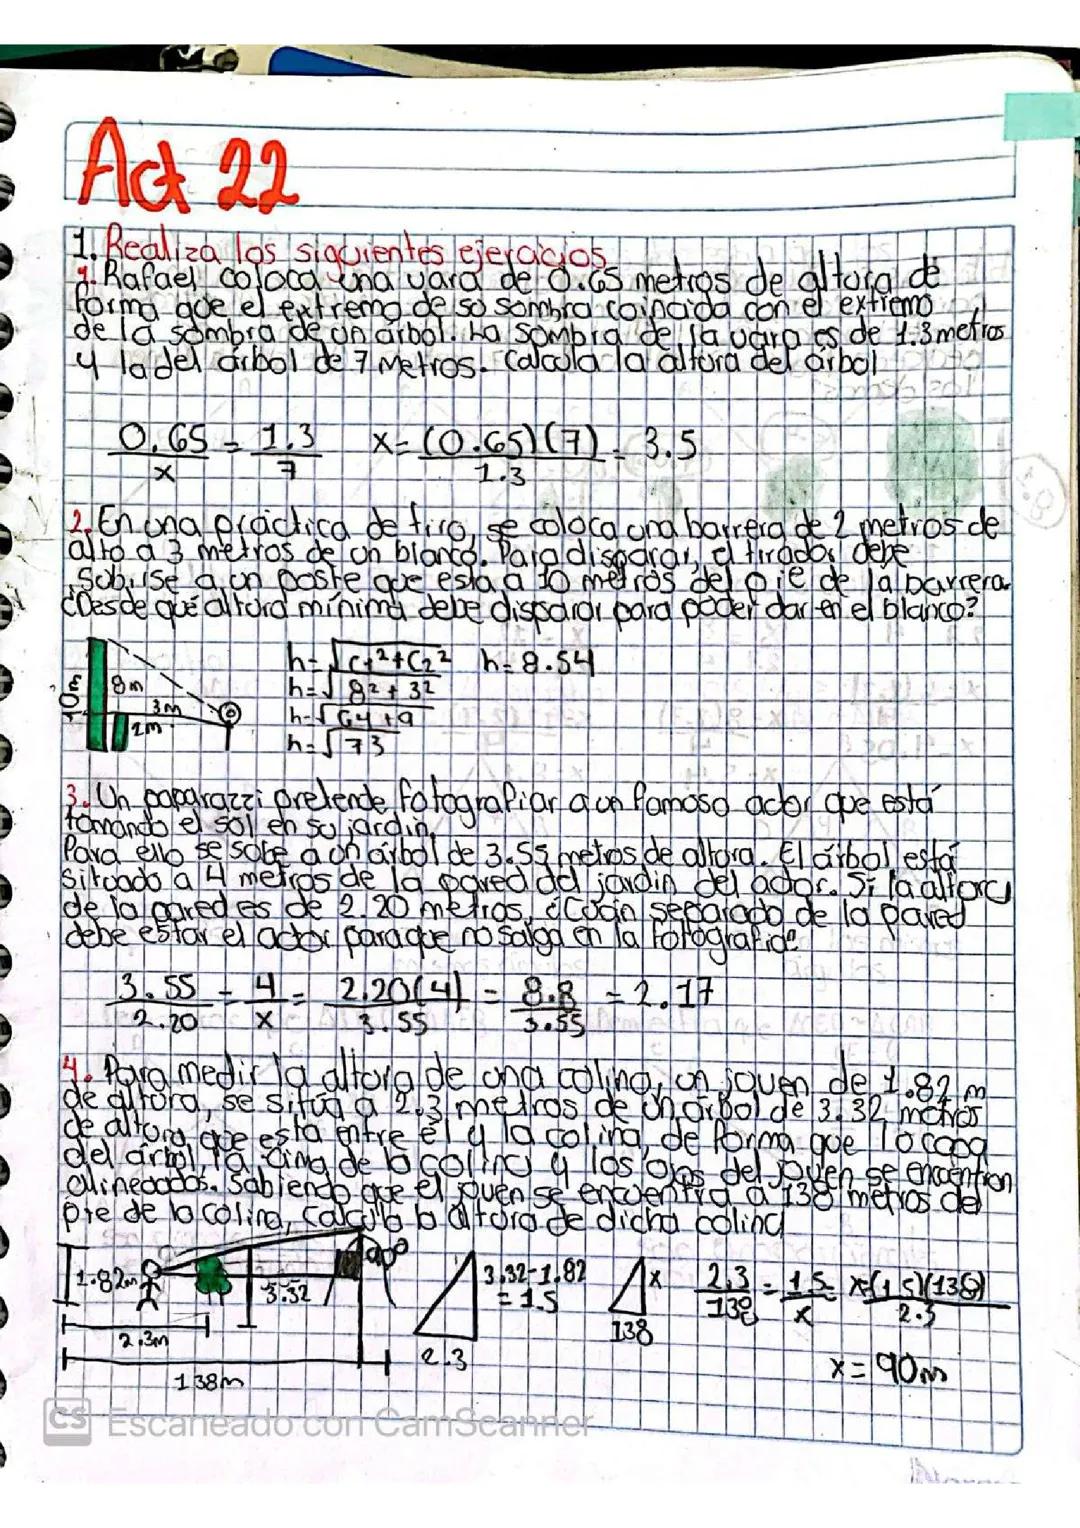 Act 22
1. Realiza los siguientes ejercicios
1. Rafael coloca una vara de 0.65 metros de altura de
forma que el extremo de su sombra coincida con el extremo
de la sombra de un árbol. La sombra de la vara es de 1.3 metros
y la del árbol de 7 metros. Calcula la altura del árbol
0.65/x = 1.3/7 x= (0.65)(7)/1.3 = 3.5
2. En una práctica de tiro, se coloca una barrera de 2 metros de
alto a 3 metros de un blanco. Para disparar, el tirador debe
subirse a un poste que esta a 10 metros del pie de la barrera
¿Desde qué altura mínima debe disparar para poder dar en el blanco?
h=√C1²+C2² h=8.54
h=√8²+3²
h=√64+9
h=√73
10m
8m
3m
2m
3. Un paparazzi pretende fotografiar a un famoso actor que está
tomando el sol en su jardin.
Para ello se sube a un árbol de 3.55 metros de altura. El árbol está
situado a 4 metros de la pared del jardín del actor. Si la altura
de la pared es de 2.20 metros, ¿Cuán separado de la pared
debe estar el actor para que no salga en la fotografia?
3.55/2.20 = 4/x = 2.20(4)/3.55 = 8.8/3.55 = 2.17
4. Para medir la altura de una colina, un joven de 1.82 m
de altura, se sitúa a 2.3 metros de un árbol de 3.32 metros
de altura, que esta entre él y la colina, de forma que lo copa
del árbol, la cima de la colina y los ojos del joven se encuentran
alineados. Sabiendo que el joven se encuentra a 138 metros del
pie de la colina, calcula la altura de dicha colina
1.82m
3.32
90°
2.3m
138m
3.32-1.82
= 1.5
2.3
x
138
2.3/138 = 1.5/x = x=(1.5)(138)/2.3
x= 90m
CS Escaneado con CamScanner